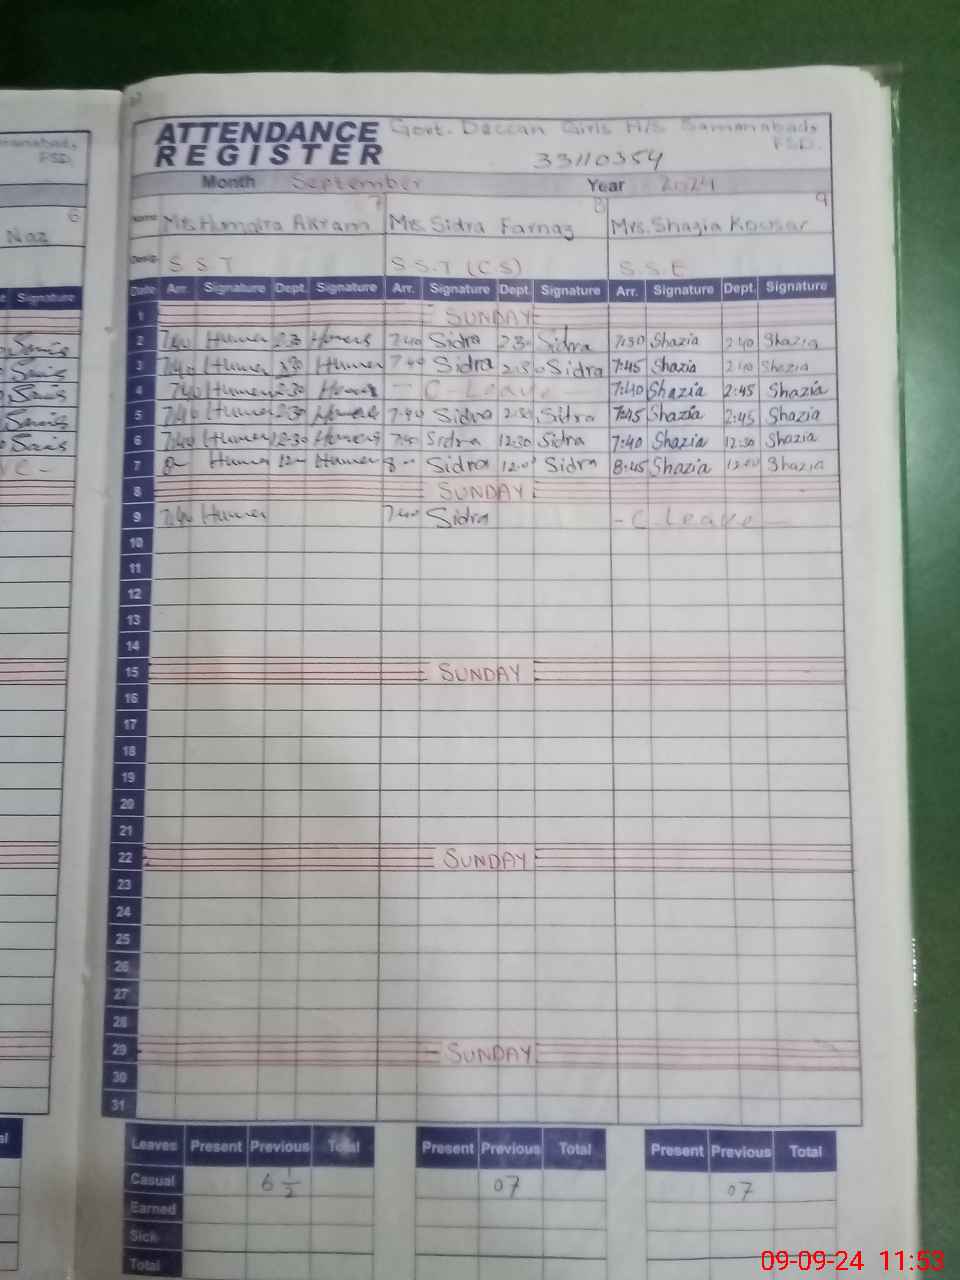 ATTENDANCE Govt. Deccan Girls H/S Samanabad,
REGISTER 33110354 FSD.
Month September Year 2024
7 8 9
Name Ms. Humaira Akram Ms. Sidra Farnaz Mrs. Shazia Kousar
Desig. S.S.T S.S.T (C.S) S.S.E
Date Arr. Signature Dept. Signature Arr. Signature Dept. Signature Arr. Signature Dept. Signature
1 SUNDAY
2 7:40 2:30 7:40 Sidra 2:30 Sidra 7:30 Shazia 2:40 Shazia
3 7:40 7:40 Sidra 2:30 Sidra 7:45 Shazia Shazia
4 7:40 2:30 - C-Leave - 7:40 Shazia 2:45 Shazia
5 7:40 2:30 7:40 Sidra 2:30 Sidra 7:45 Shazia 2:45 Shazia
6 7:40 12:30 7:40 Sidra 12:30 Sidra 7:40 Shazia 12:30 Shazia
7 8- 12- 8-- Sidra 12:00 Sidra 8:45 Shazia 12:00 Shazia
8 SUNDAY
9 7:40 7:40 Sidra - C-Leave -
10
11
12
13
14
15 SUNDAY
16
17
18
19
20
21
22 SUNDAY
23
24
25
26
27
28
29 SUNDAY
30
31
Leaves Present Previous Total Present Previous Total Present Previous Total
Casual 6 1/2 07 07
Earned
Sick
Total
samanabad,
FSD.
6
Naz
Signature
09-09-24 11:53